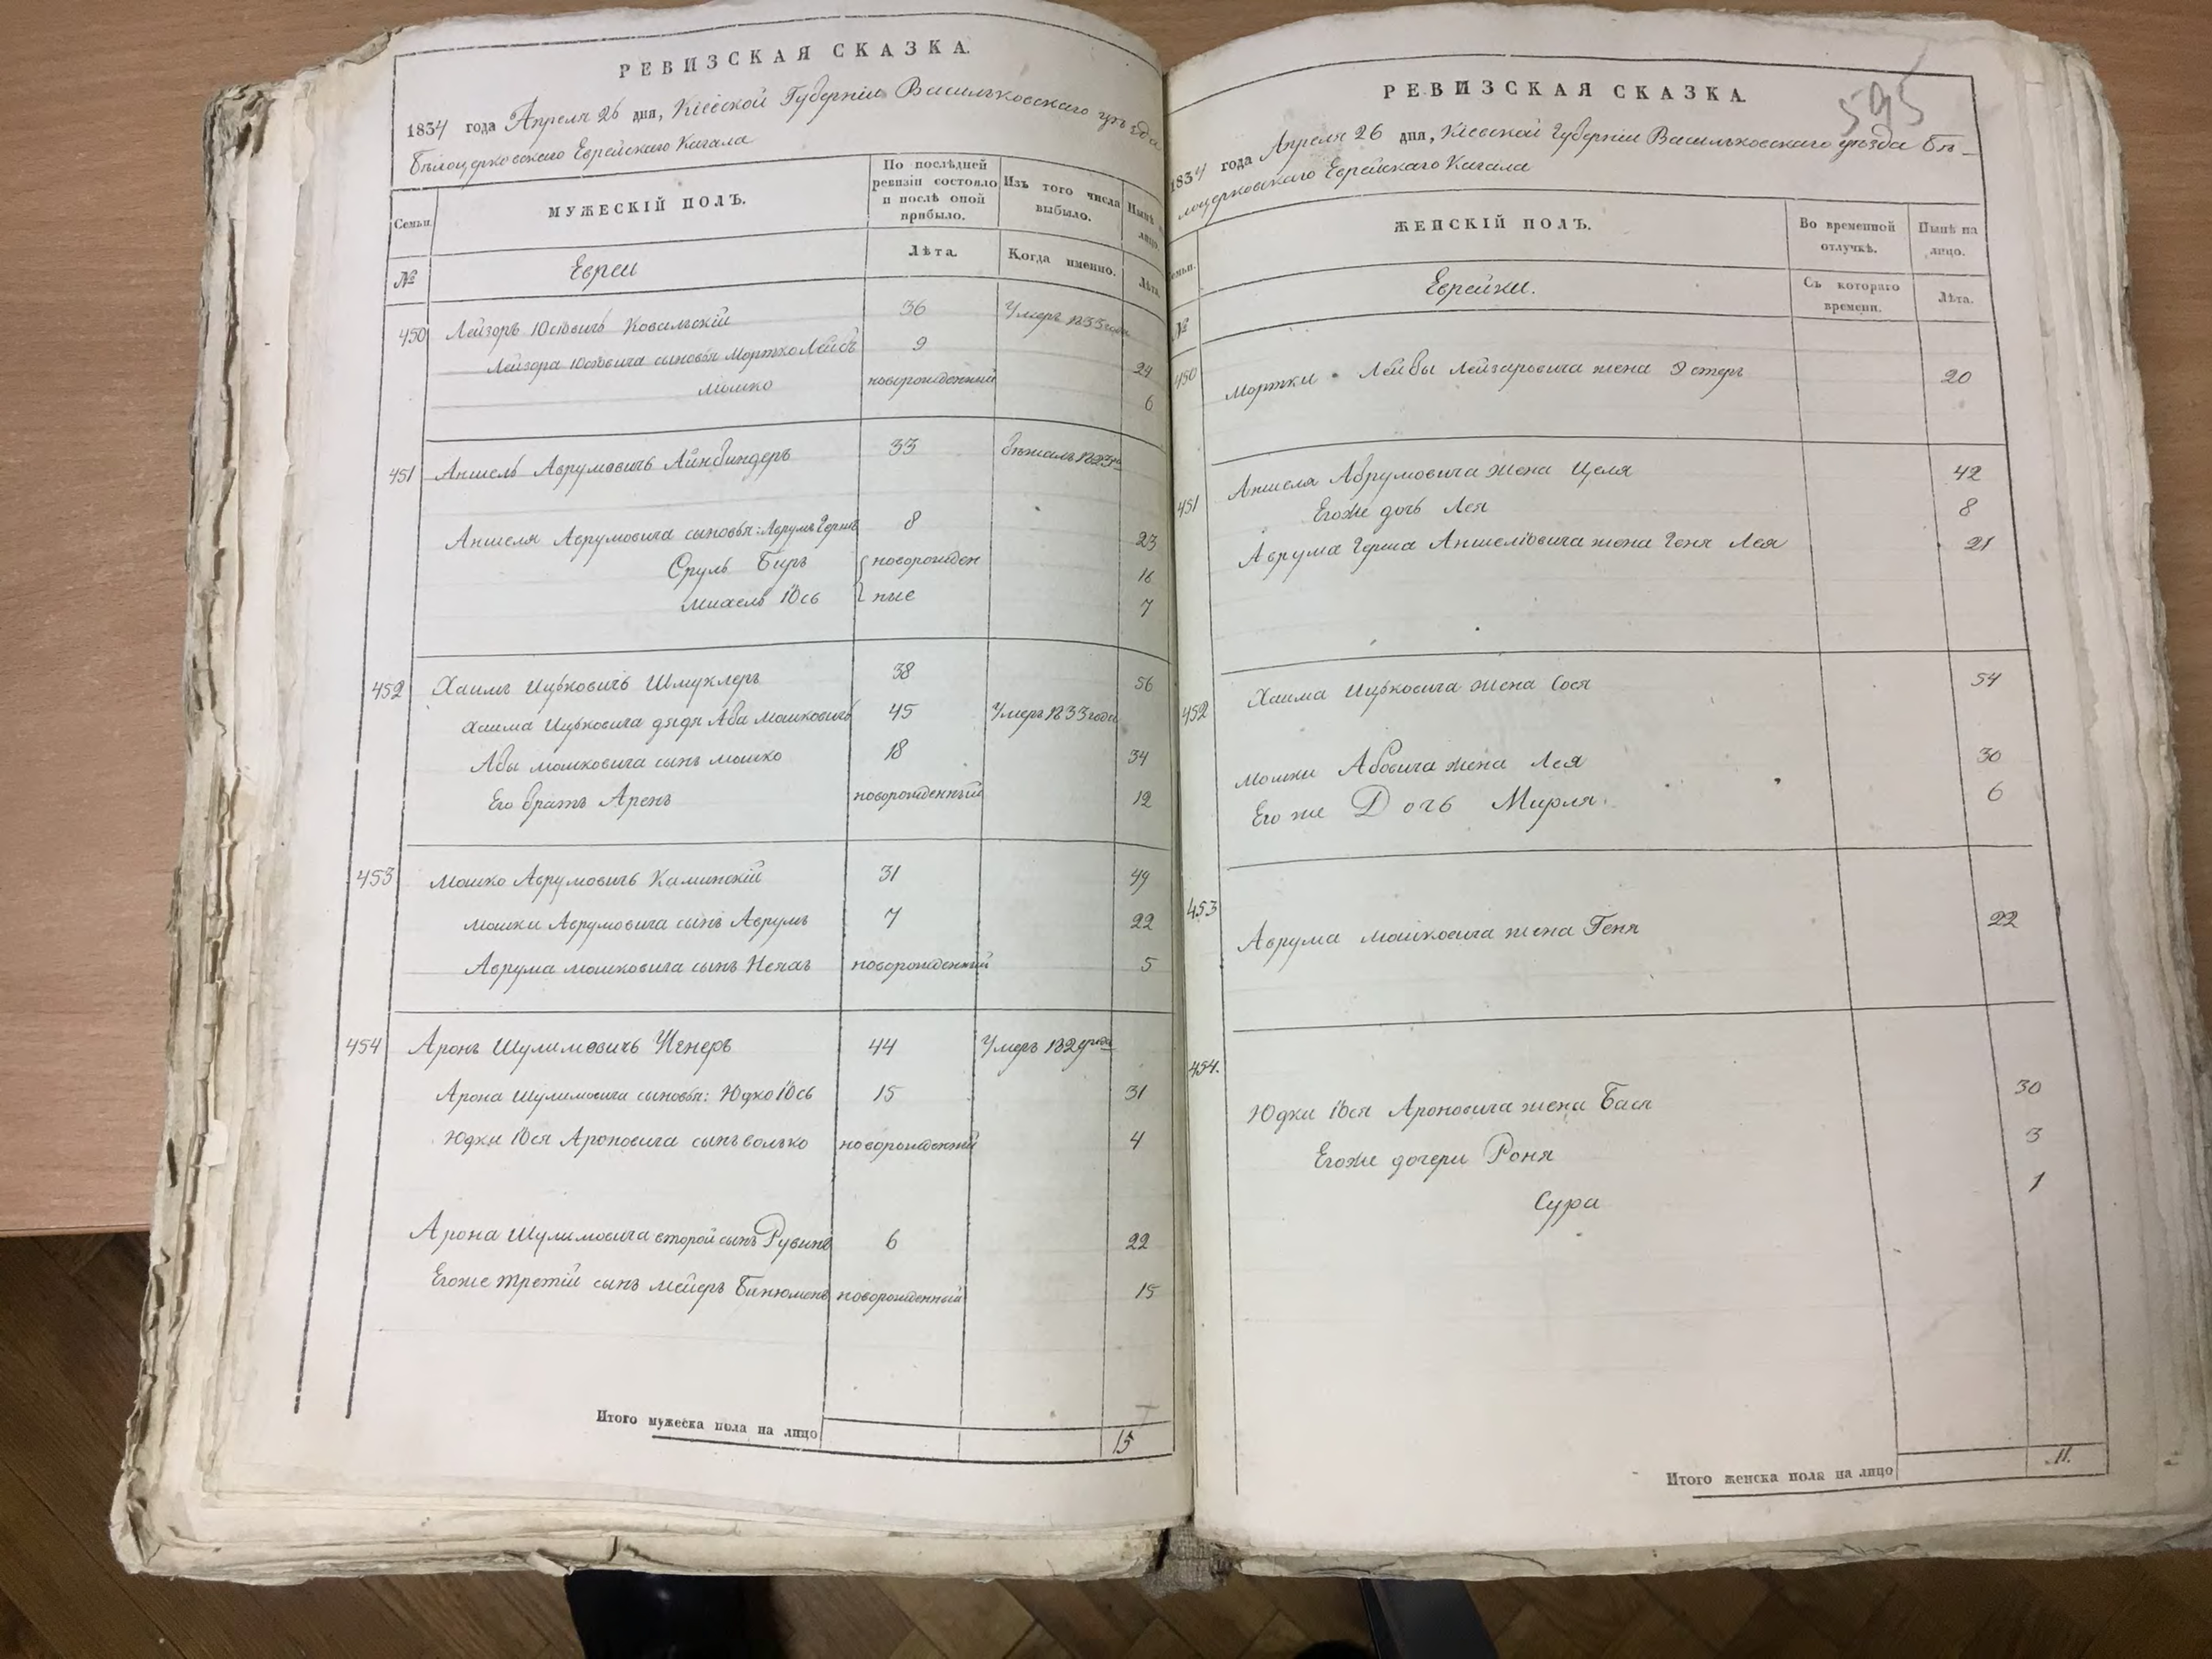 РЕВИЗСКАЯ СКАЗКА.
1834 года Апреля 26 дня, Кіевской Губерніи Васильковскаго уѣзда
Бѣлоцерковскаго Еврейскаго Кагала
Семьи.
МУЖЕСКІЙ ПОЛЪ.
По послѣдней ревизіи состояло и послѣ оной прибыло.
Изъ того числа выбыло.
Нынѣ на лицо.
№
Евреи
Лѣта.
Когда именно.
Лѣта.
450 Лейзоръ Юсіовичъ Ковальскій 36 Умеръ 1833 года
Лейзора Юсіовича сыновья Мортко Лейба 9 24
Мошко новорожденный 6
451 Аншель Аврумовичъ Айнбиндеръ 33 бѣжалъ 1823 го
Аншеля Аврумовича сыновья: Аврумъ Гершъ 8 23
Сруль Беръ новорожден 16
Михель Іось ные 7
452 Хаимъ Ицьковичъ Шмуклеръ 38 56
Хаима Ицьковича дядя Аба Мошковичъ 45 Умеръ 1833 года
Абы Мошковича сынъ Мошко 18 34
Его братъ Аренъ новорожденный 12
453 Мошко Аврумовичъ Каминскій 31 49
Мошки Аврумовича сынъ Аврумъ 7 22
Аврума Мошковича сынъ новорожденный 5
454 Аронъ Шулимовичъ 44 Умеръ 1829 года
Арона Шулимовича сыновья: Юдко Іось 15 31
Юдки Іося Ароновича сынъ Волько новорожденный 4
Арона Шулимовича второй сынъ Рувинъ 6 22
Егоже третій сынъ Мейеръ Бинюменъ новорожденный 15
Итого мужеска пола на лицо 15
595
РЕВИЗСКАЯ СКАЗКА.
1834 года Апреля 26 дня, Кіевской Губерніи Васильковскаго уѣзда Бѣ-
лоцерковскаго Еврейскаго Кагала
Семьи.
ЖЕНСКІЙ ПОЛЪ.
Во временной отлучкѣ.
Нынѣ на лицо.
№
Еврейки.
Съ котораго времени.
Лѣта.
450 Мортки Лейбы Лейзаровича жена Эстеръ 20
451 Аншеля Абрумовича жена Целя 42
Егоже дочь Лея 8
Аврума Герша Аншеліовича жена Геня Лея 21
452 Хаима Ицьковича жена Сося 54
Мошки Абовича жена Лея 30
Его же Дочь Мирля. 6
453 Аврума Мошковича жена Геня 22
454. Юдки Іося Ароновича жена Бася 30
Егоже дочери Роня 3
Сура 1
Итого женска пола на лицо 11.